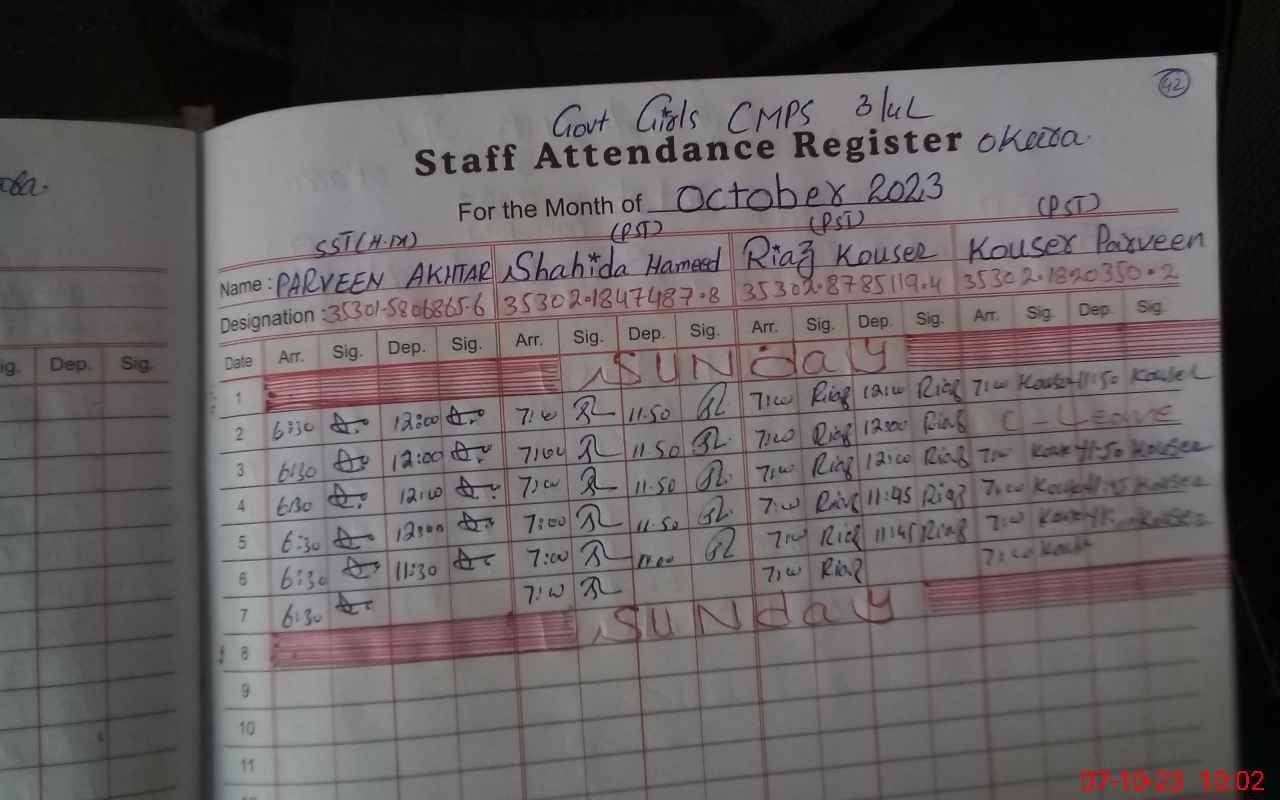 42
Govt Girls CMPS 3/4L
Staff Attendance Register Okara.
For the Month of October 2023
SST (H.M) (PST) (PST) (PST)
Name : PARVEEN AKHTAR Shahida Hameed Riaz Kouser Kouser Parveen
Designation : 35301-5806865-6 35302-1847487-8 35302-8785119-4 35302-1820350-2
ig. Dep. Sig. Date Arr. Sig. Dep. Sig. Arr. Sig. Dep. Sig. Arr. Sig. Dep. Sig. Arr. Sig. Dep. Sig.
1 SUNdaY
2 6:30 12:00 7:00 11.50 7:00 Riaz 12:00 Riaz 7:00 Kouser 11:50 Kouser
3 6:30 12:00 7:00 11.50 7:00 Riaz 12:00 Riaz C-Leave
4 6:30 12:00 7:00 11.50 7:00 Riaz 12:00 Riaz 7:00 Kouser 11:50 Kouser
5 6:30 12:00 7:00 11.50 7:00 Riaz 11:45 Riaz 7:00 Kouser 11:45 Kouser
6 6:30 11:30 7:00 7:00 Riaz 11:45 Riaz 7:00 Kouser Kouser
7 6:30 7:00 7:00 Riaz 7:00 Kouser
8 SUNdaY
9
10
11
07-10-23 10:02